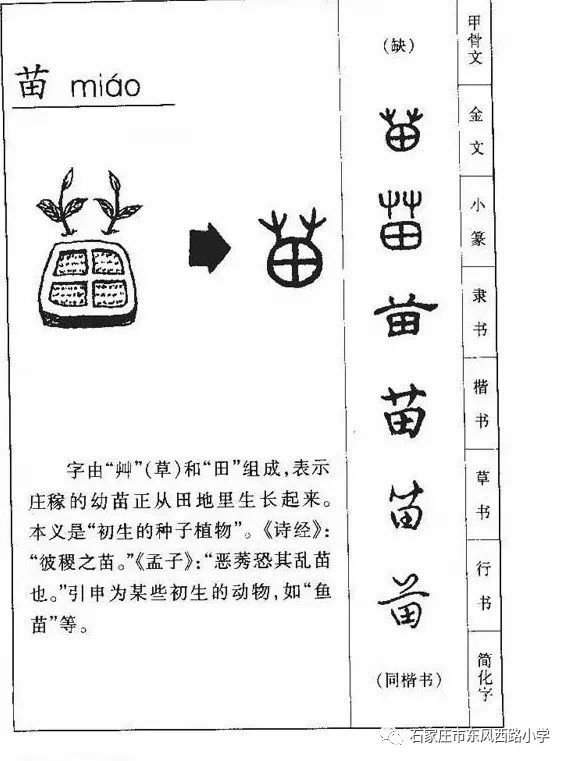 苗 miáo
字由“艸”(草)和“田”组成,表示
庄稼的幼苗正从田地里生长起来。
本义是“初生的种子植物”。《诗经》:
“彼稷之苗。”《孟子》:“恶莠恐其乱苗
也。”引申为某些初生的动物,如“鱼
苗”等。
(缺) 甲骨文
苗 金文
苗 小篆
苗 隶书
苗 楷书
苗 草书
苗 行书
(同楷书) 简化字
石家庄市东风西路小学